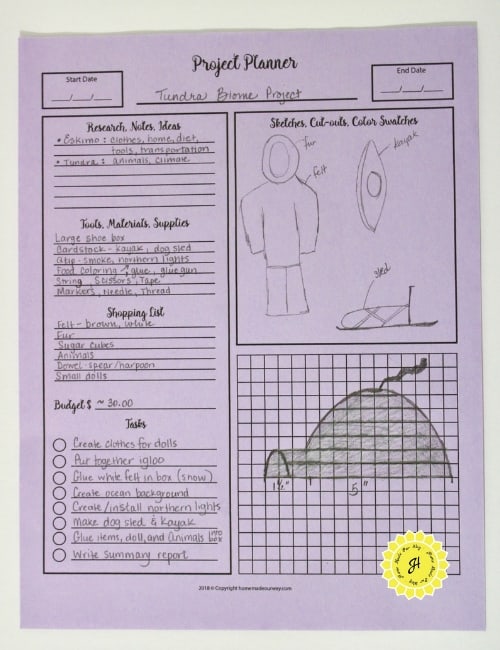 Project Planner
Start Date
__/__/__
End Date
__/__/__
Tundra Biome Project
Research, Notes, Ideas
• Eskimo: clothes, home, diet,
tools, transportation
• Tundra: animals, climate
Tools, Materials, Supplies
Large shoe box
Cardstock - kayak, dog sled
Qtip - smoke, northern lights
Food coloring, glue, glue gun
String, Scissors, Tape
Markers, Needle, Thread
Shopping List
Felt - brown, white
Fur
Sugar cubes
Animals
Dowel - spear/harpoon
Small dolls
Budget $ ~ 30.00
Tasks
Create clothes for dolls
Put together igloo
Glue white felt in box (snow)
Create ocean background
Create/install northern lights
Make dog sled & kayak
Glue items, doll, and animals into box
Write summary report
Sketches, Cut-outs, Color Swatches
fur
felt
kayak
sled
1½"
5"
2018 © Copyright homemadeourway.com
JH